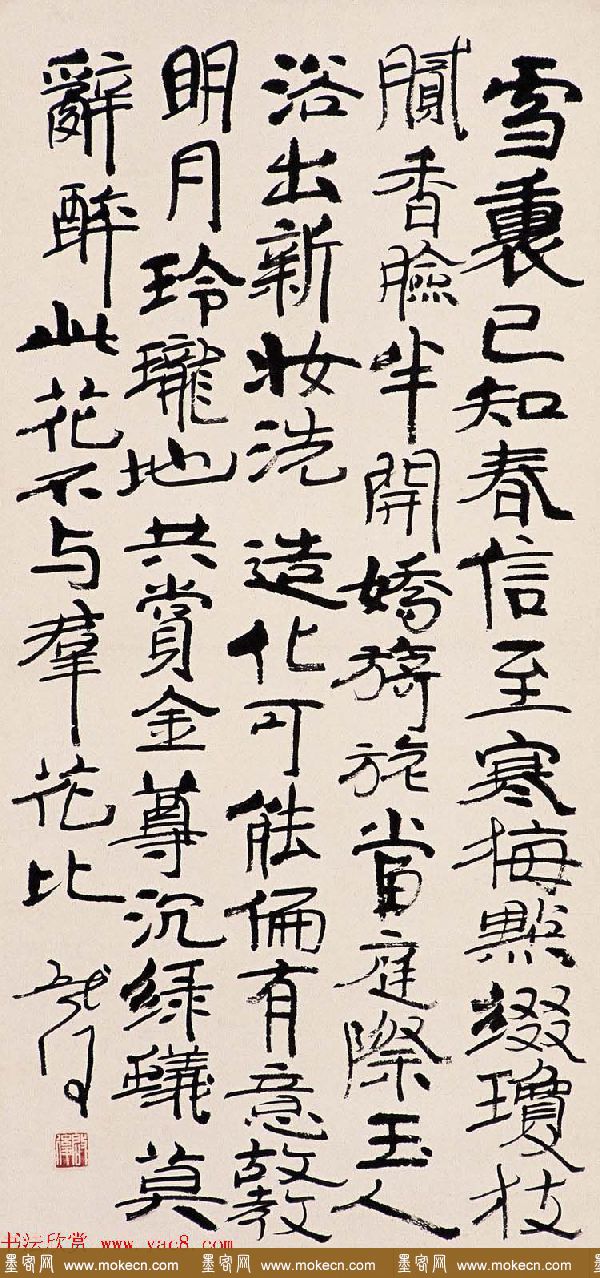 雪裏已知春信至寒梅點綴瓊枝
膩香臉半開嬌旖旎當庭際玉人
浴出新妆洗造化可能偏有意故教
明月玲瓏地共賞金尊沉綠蟻莫
辭醉此花不与羣花比
书法欣赏 www.yac8.com
墨客网 www.mokecn.com 墨客网 www.mokecn.com 墨客网 www.mokecn.com